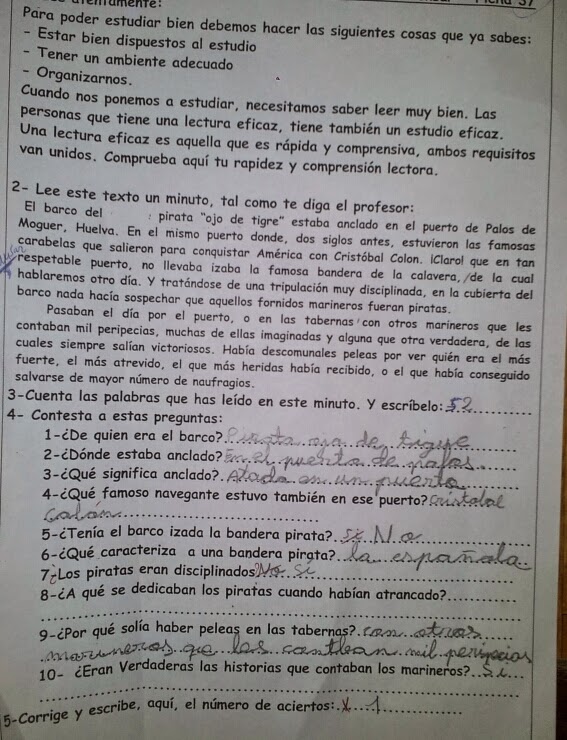 Para poder estudiar bien debemos hacer las siguientes cosas que ya sabes:
- Estar bien dispuestos al estudio
- Tener un ambiente adecuado
- Organizarnos.
Cuando nos ponemos a estudiar, necesitamos saber leer muy bien. Las
personas que tiene una lectura eficaz, tiene también un estudio eficaz.
Una lectura eficaz es aquella que es rápida y comprensiva, ambos requisitos
van unidos. Comprueba aquí tu rapidez y comprensión lectora.
2- Lee este texto un minuto, tal como te diga el profesor:
El barco del : pirata "ojo de tigre" estaba anclado en el puerto de Palos de
Moguer, Huelva. En el mismo puerto donde, dos siglos antes, estuvieron las famosas
carabelas que salieron para conquistar América con Cristóbal Colon. ¡Claro! que en tan
respetable puerto, no llevaba izaba la famosa bandera de la calavera, /de la cual
hablaremos otro día. Y tratándose de una tripulación muy disciplinada, en la cubierta del
barco nada hacía sospechar que aquellos fornidos marineros fueran piratas.
Pasaban el día por el puerto, o en las tabernas con otros marineros que les
contaban mil peripecias, muchas de ellas imaginadas y alguna que otra verdadera, de las
cuales siempre salían victoriosos. Había descomunales peleas por ver quién era el más
fuerte, el más atrevido, el que más heridas había recibido, o el que había conseguido
salvarse de mayor número de naufragios.
3-Cuenta las palabras que has leído en este minuto. Y escríbelo: 52
4- Contesta a estas preguntas:
1-¿De quien era el barco? Pirata oja de tigre
2-¿Dónde estaba anclado? En el puenta de palos
3-¿Qué significa anclado?. Atada en un puerto
4-¿Qué famoso navegante estuvo también en ese puerto? Cristobal
Colón
5-¿Tenía el barco izada la bandera pirata?. Si No
6-¿Qué caracteriza a una bandera pirata?. la española
7¿Los piratas eran disciplinados No Si
8-¿A qué se dedicaban los piratas cuando habían atrancado?
9-¿Por qué solía haber peleas en las tabernas?. con otros
marineros que les mil peripecias
10- ¿Eran Verdaderas las historias que contaban los marineros?. Si
5-Corrige y escribe, aquí, el número de aciertos: 1